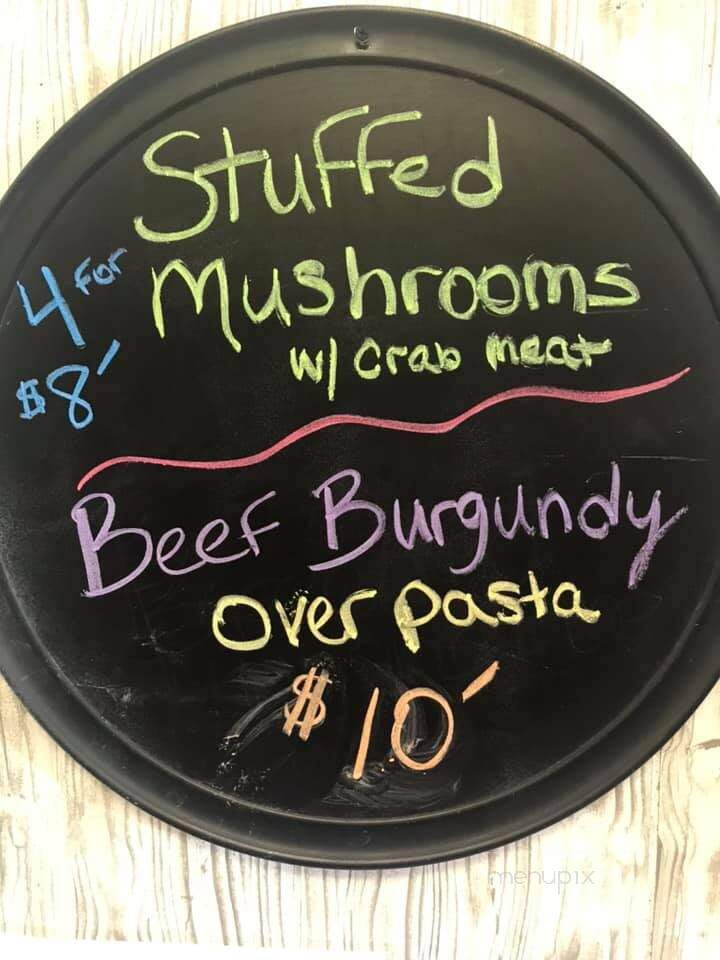 Stuffed
4 for Mushrooms
$8 w/ crab meat
Beef Burgundy
Over pasta
$10
menupix